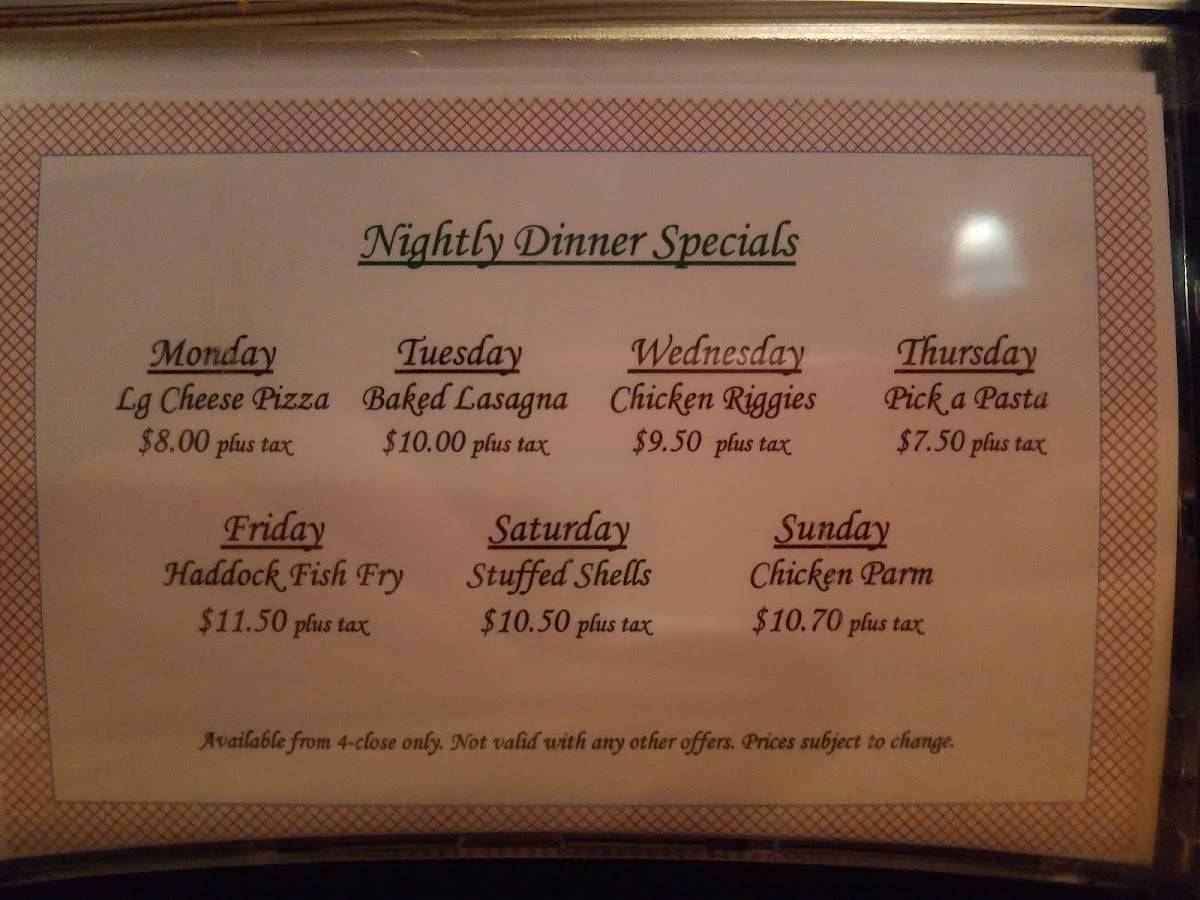 Nightly Dinner Specials
Monday Tuesday Wednesday Thursday
Lg Cheese Pizza Baked Lasagna Chicken Riggies Pick a Pasta
$8.00 plus tax $10.00 plus tax $9.50 plus tax $7.50 plus tax
Friday Saturday Sunday
Haddock Fish Fry Stuffed Shells Chicken Parm
$11.50 plus tax $10.50 plus tax $10.70 plus tax
Available from 4-close only. Not valid with any other offers. Prices subject to change.